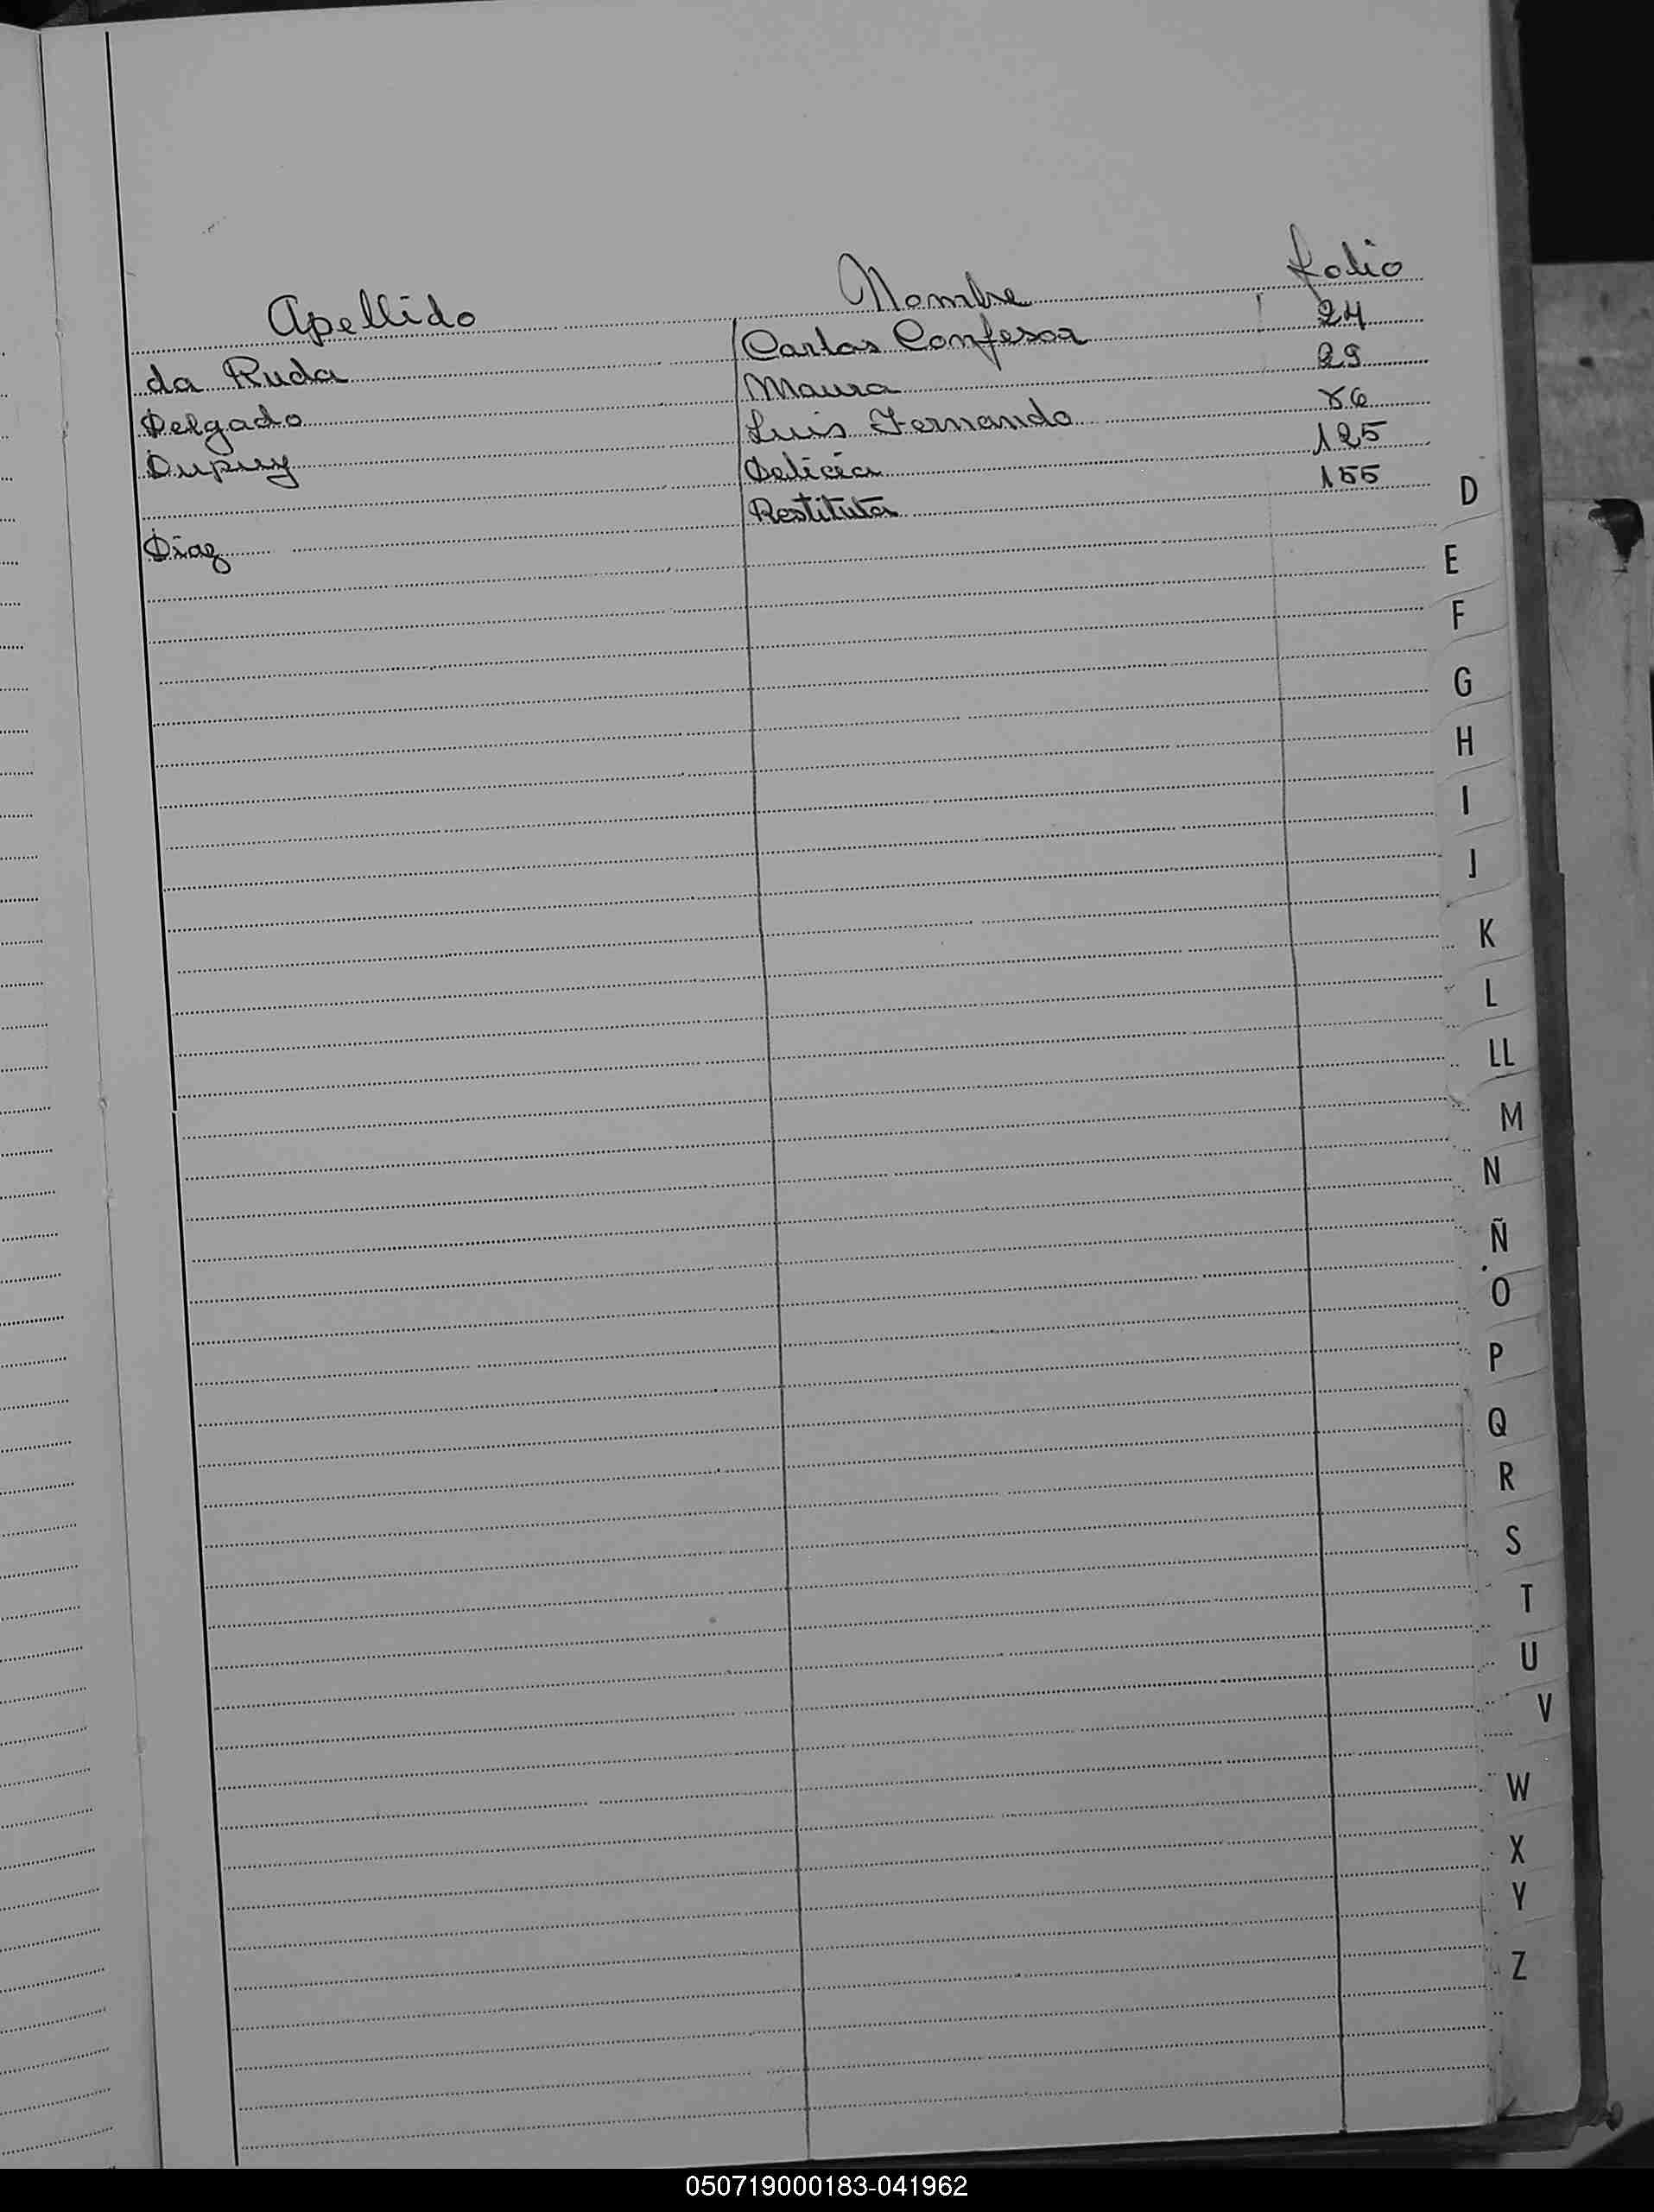 Apellido Nombre Folio
da Ruda Carlos Confesor 24
Delgado Maura 29
Dupuy Luis Fernando 86
Delicia 125
Diaz Restituta 155
D
E
F
G
H
I
J
K
L
LL
M
N
Ñ
O
P
Q
R
S
T
U
V
W
X
Y
Z
050719000183-041962